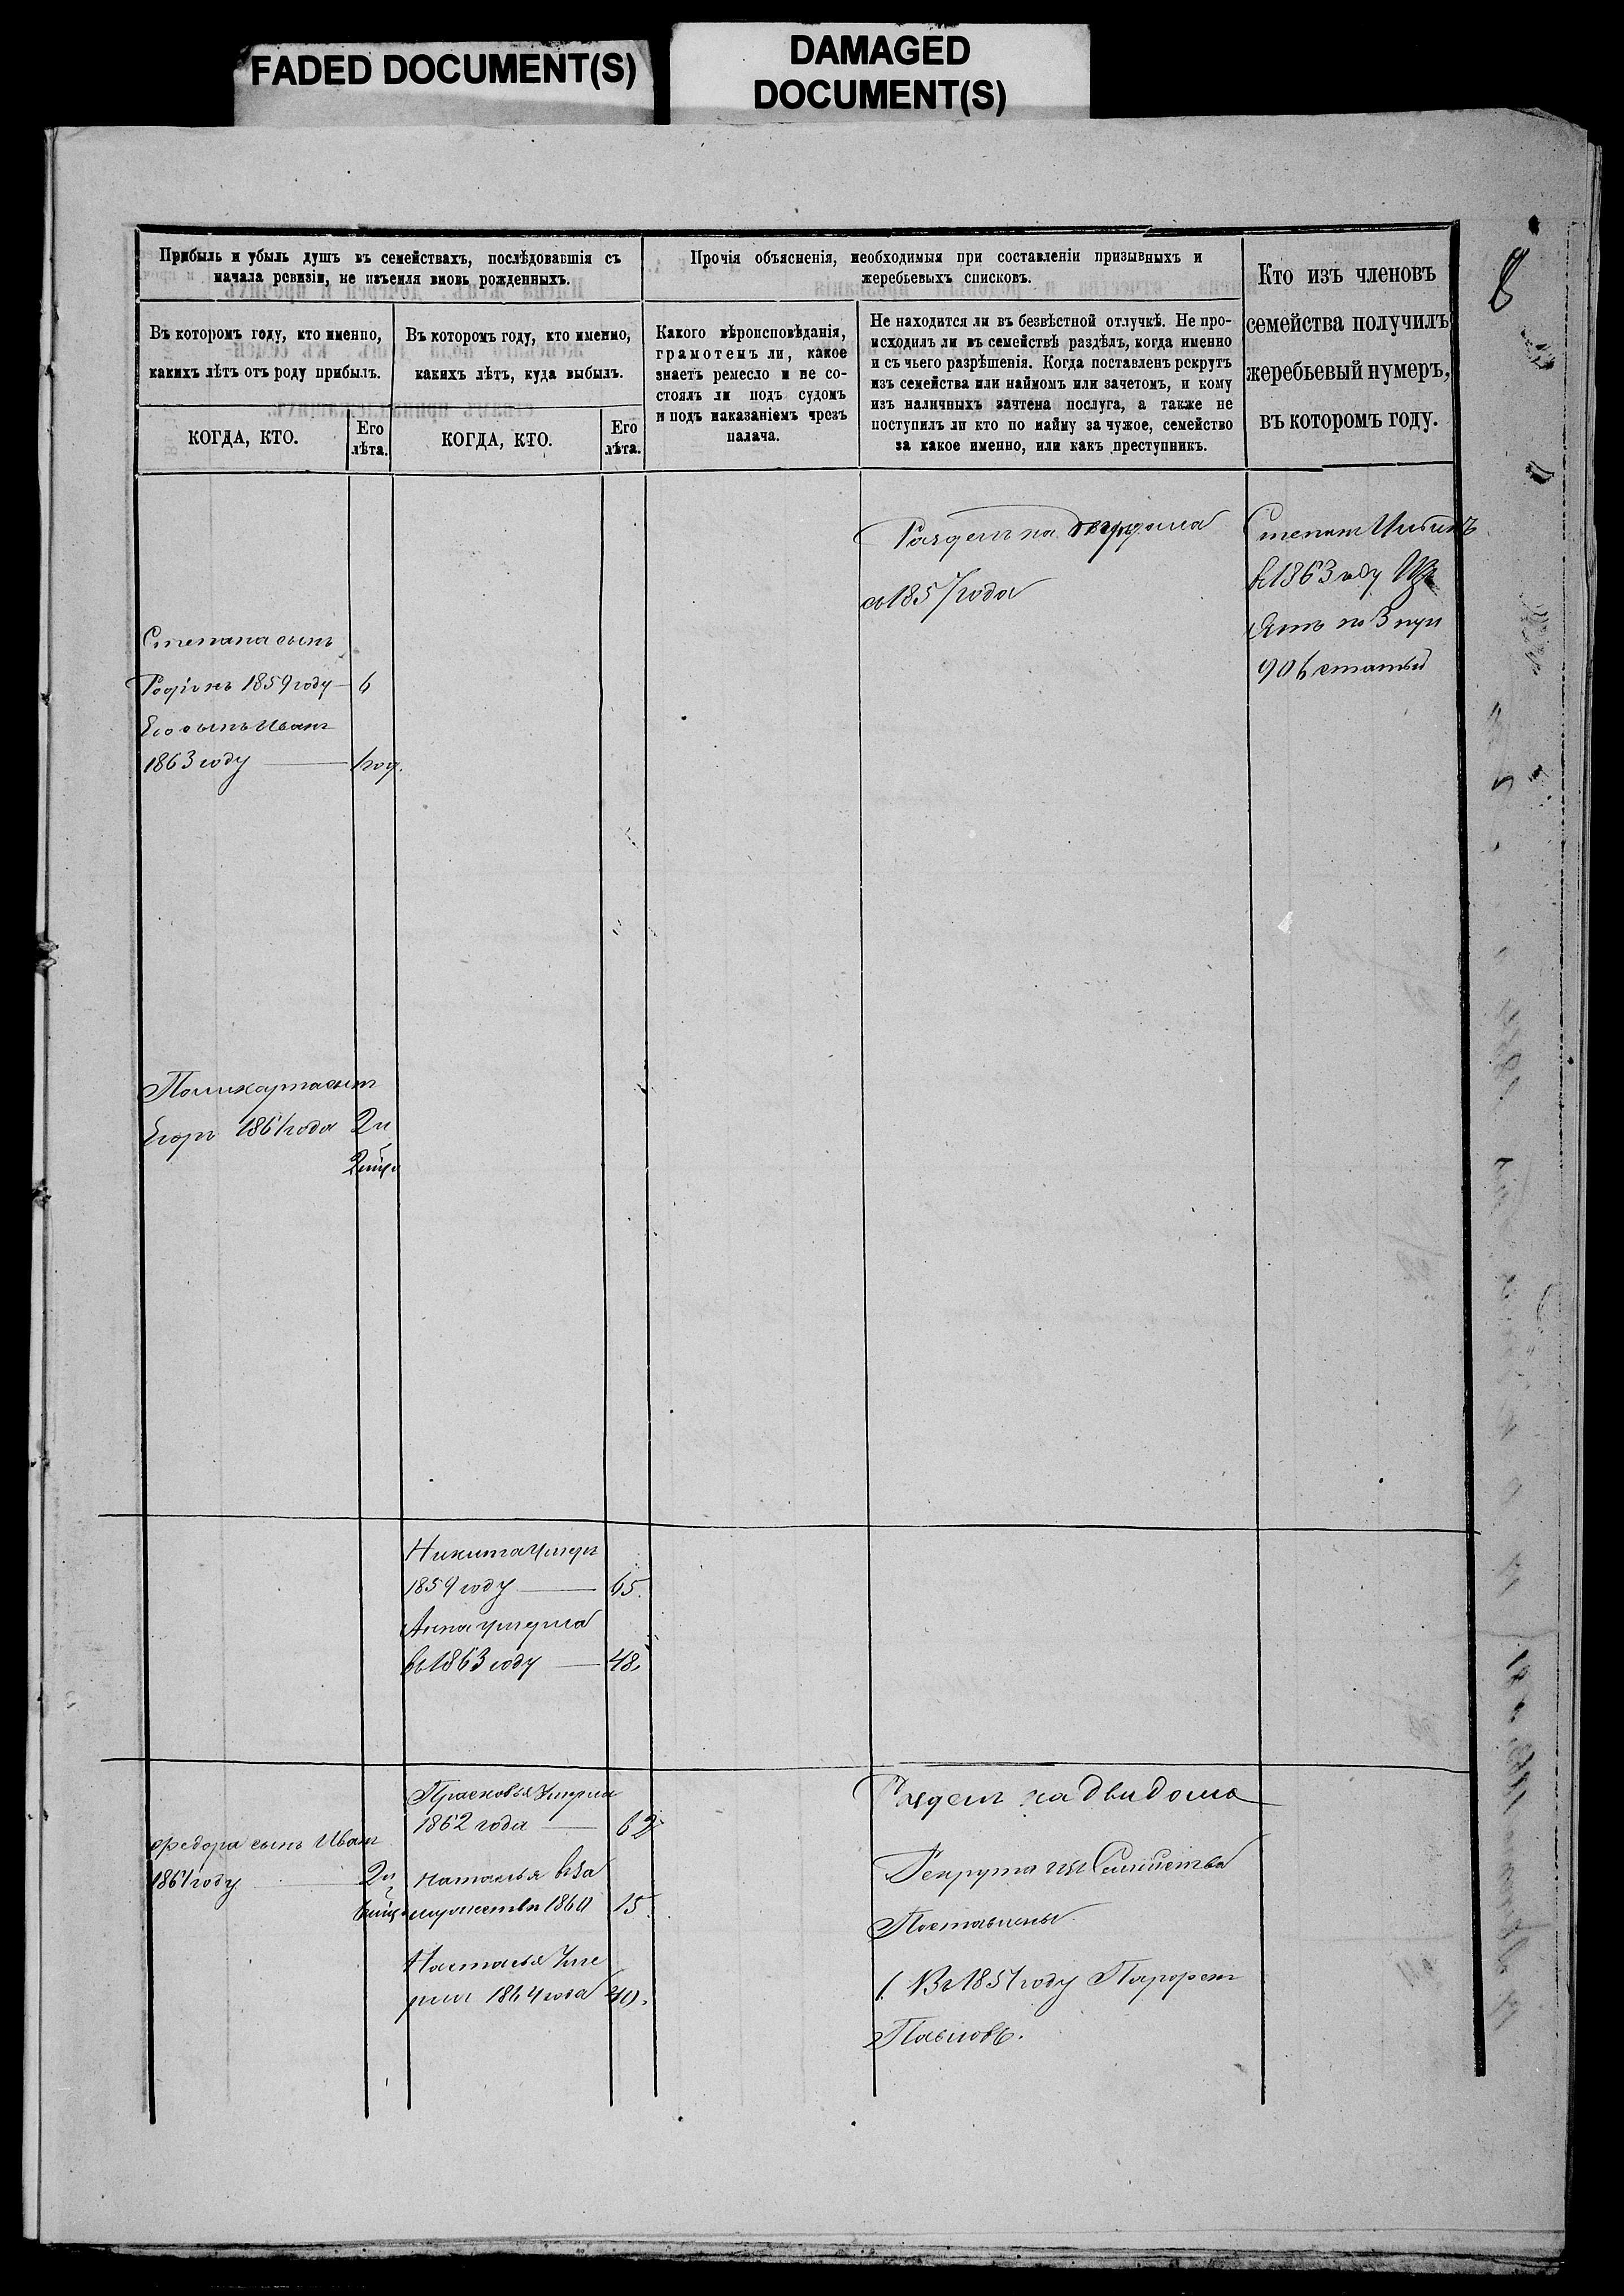 FADED DOCUMENT(S)
DAMAGED
DOCUMENT(S)
8
Прибыль и убыль душъ въ семействахъ, послѣдовавшія съ
начала ревизіи, не изъемля вновь рожденныхъ.
Прочія объясненія, необходимыя при составленіи призывныхъ и
жеребьевыхъ списковъ.
Кто изъ членовъ
семейства получилъ
жеребьевый нумеръ,
въ которомъ году.
Въ которомъ году, кто именно,
какихъ лѣтъ отъ роду прибылъ.
Въ которомъ году, кто именно,
какихъ лѣтъ, куда выбылъ.
Какого вѣроисповѣданія,
грамотенъ ли, какое
знаетъ ремесло и не со-
стоялъ ли подъ судомъ
и подъ наказаніемъ чрезъ
палача.
Не находится ли въ безвѣстной отлучкѣ. Не про-
исходилъ ли въ семействѣ раздѣлъ, когда именно
и съ чьего разрѣшенія. Когда поставленъ рекрутъ
изъ семейства или наймомъ или зачетомъ, и кому
изъ наличныхъ зачтена послуга, а также не
поступилъ ли кто по найму за чужое, семейство
за какое именно, или какъ преступникъ.
КОГДА, КТО.
Его
лѣта.
КОГДА, КТО.
Его
лѣта.
Разделъ на два дома
съ 1857 года
Степанъ
въ 1863 году Изъ
ятъ по 3 пун
906 статьи
Степана сынъ
Родіонъ 1859 году 6
Его сынъ Иванъ
1863 году 1 год.
Поликарпа сынъ
Егоръ 1861 года 2 и
Никита умеръ
1859 году 65.
Анна умерла
въ 1863 году 48.
Прасковья умерла
1862 года 62
Федора сынъ Иванъ
1861 году 2 и
Наталья вза
мужество 1860 15.
Настасья уме
рла 1864 года 40.
Разделъ на два дома
Рекрута изъ Семейства
Поставлены
1. Въ 1851 году
Павловъ.